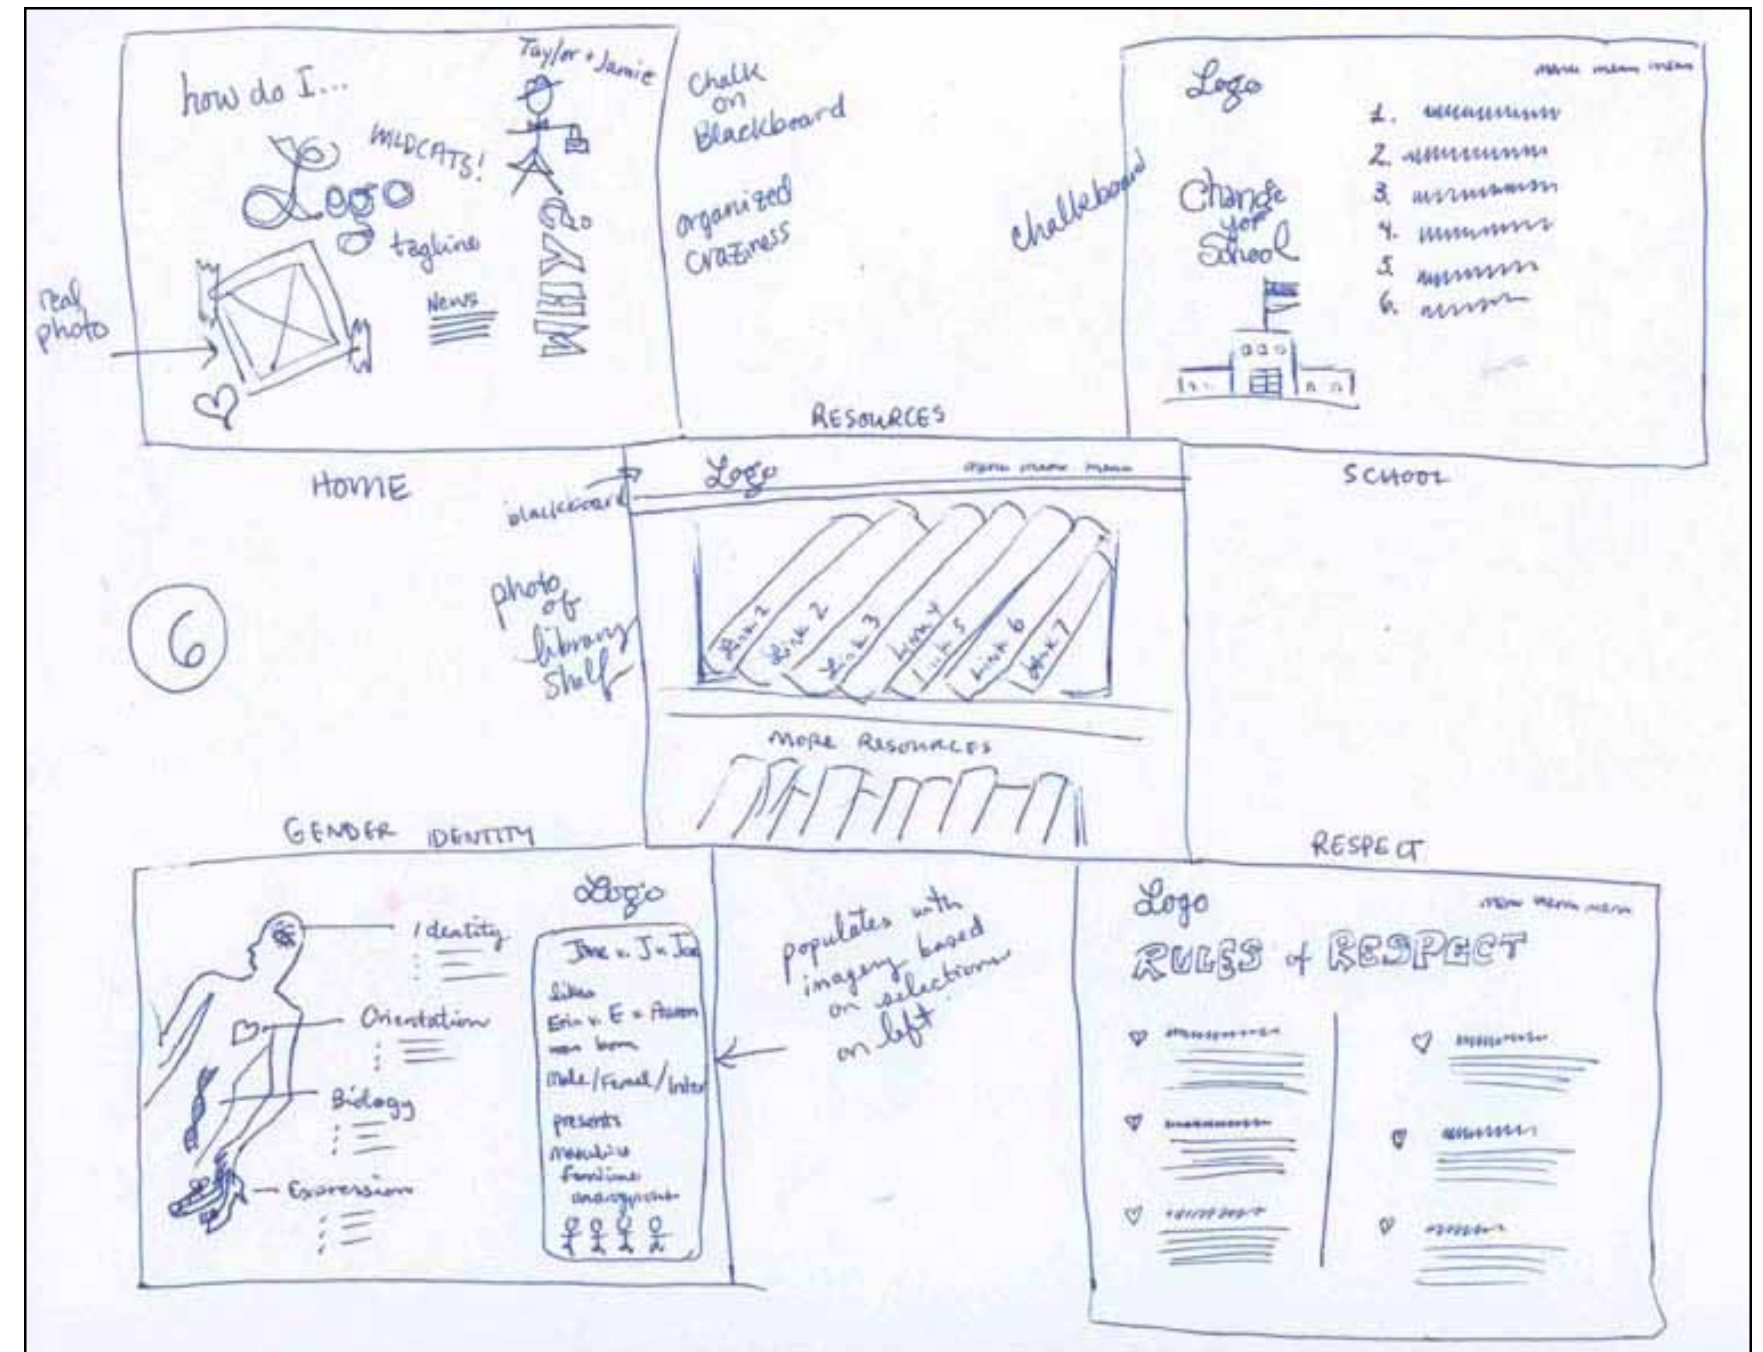 how do I...
Taylor + Jamie
WILDCATS!
Logo
tagline
News
real
photo
Chalk
on
Blackboard
organized
craziness
HOME
chalkboard
Logo
menu menu menu
Change
for
School
1.
2.
3.
4.
5.
6.
SCHOOL
RESOURCES
blackboard
Logo
menu menu menu
photo
of
library
shelf
Link 1
Link 2
Link 3
Link 4
Link 5
Link 6
Link 7
MORE RESOURCES
6
GENDER IDENTITY
Logo
Identity
Orientation
Biology
Expression
Jane
likes
Erin
was born
Male/Femal/Inter
presents
masculine
feminine
populates with
imagery based
on selections
on left
RESPECT
Logo
menu menu menu
RULES of RESPECT